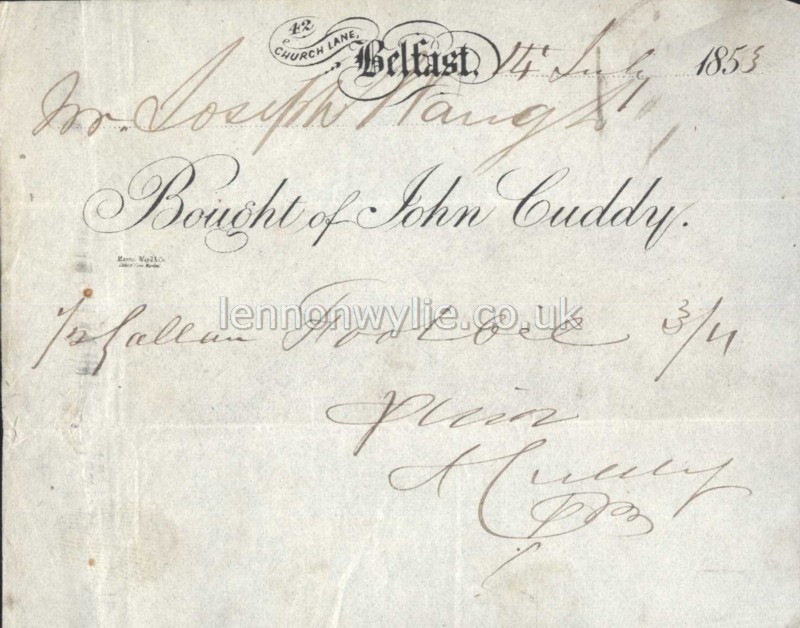 42
CHURCH LANE,
Belfast, 14 July 1853
Mr. Joseph Waugh
Bought of John Cuddy.
Marcus Ward & Co.
lennonwylie.co.uk
1/2 Gallan 3/11
Cuddy